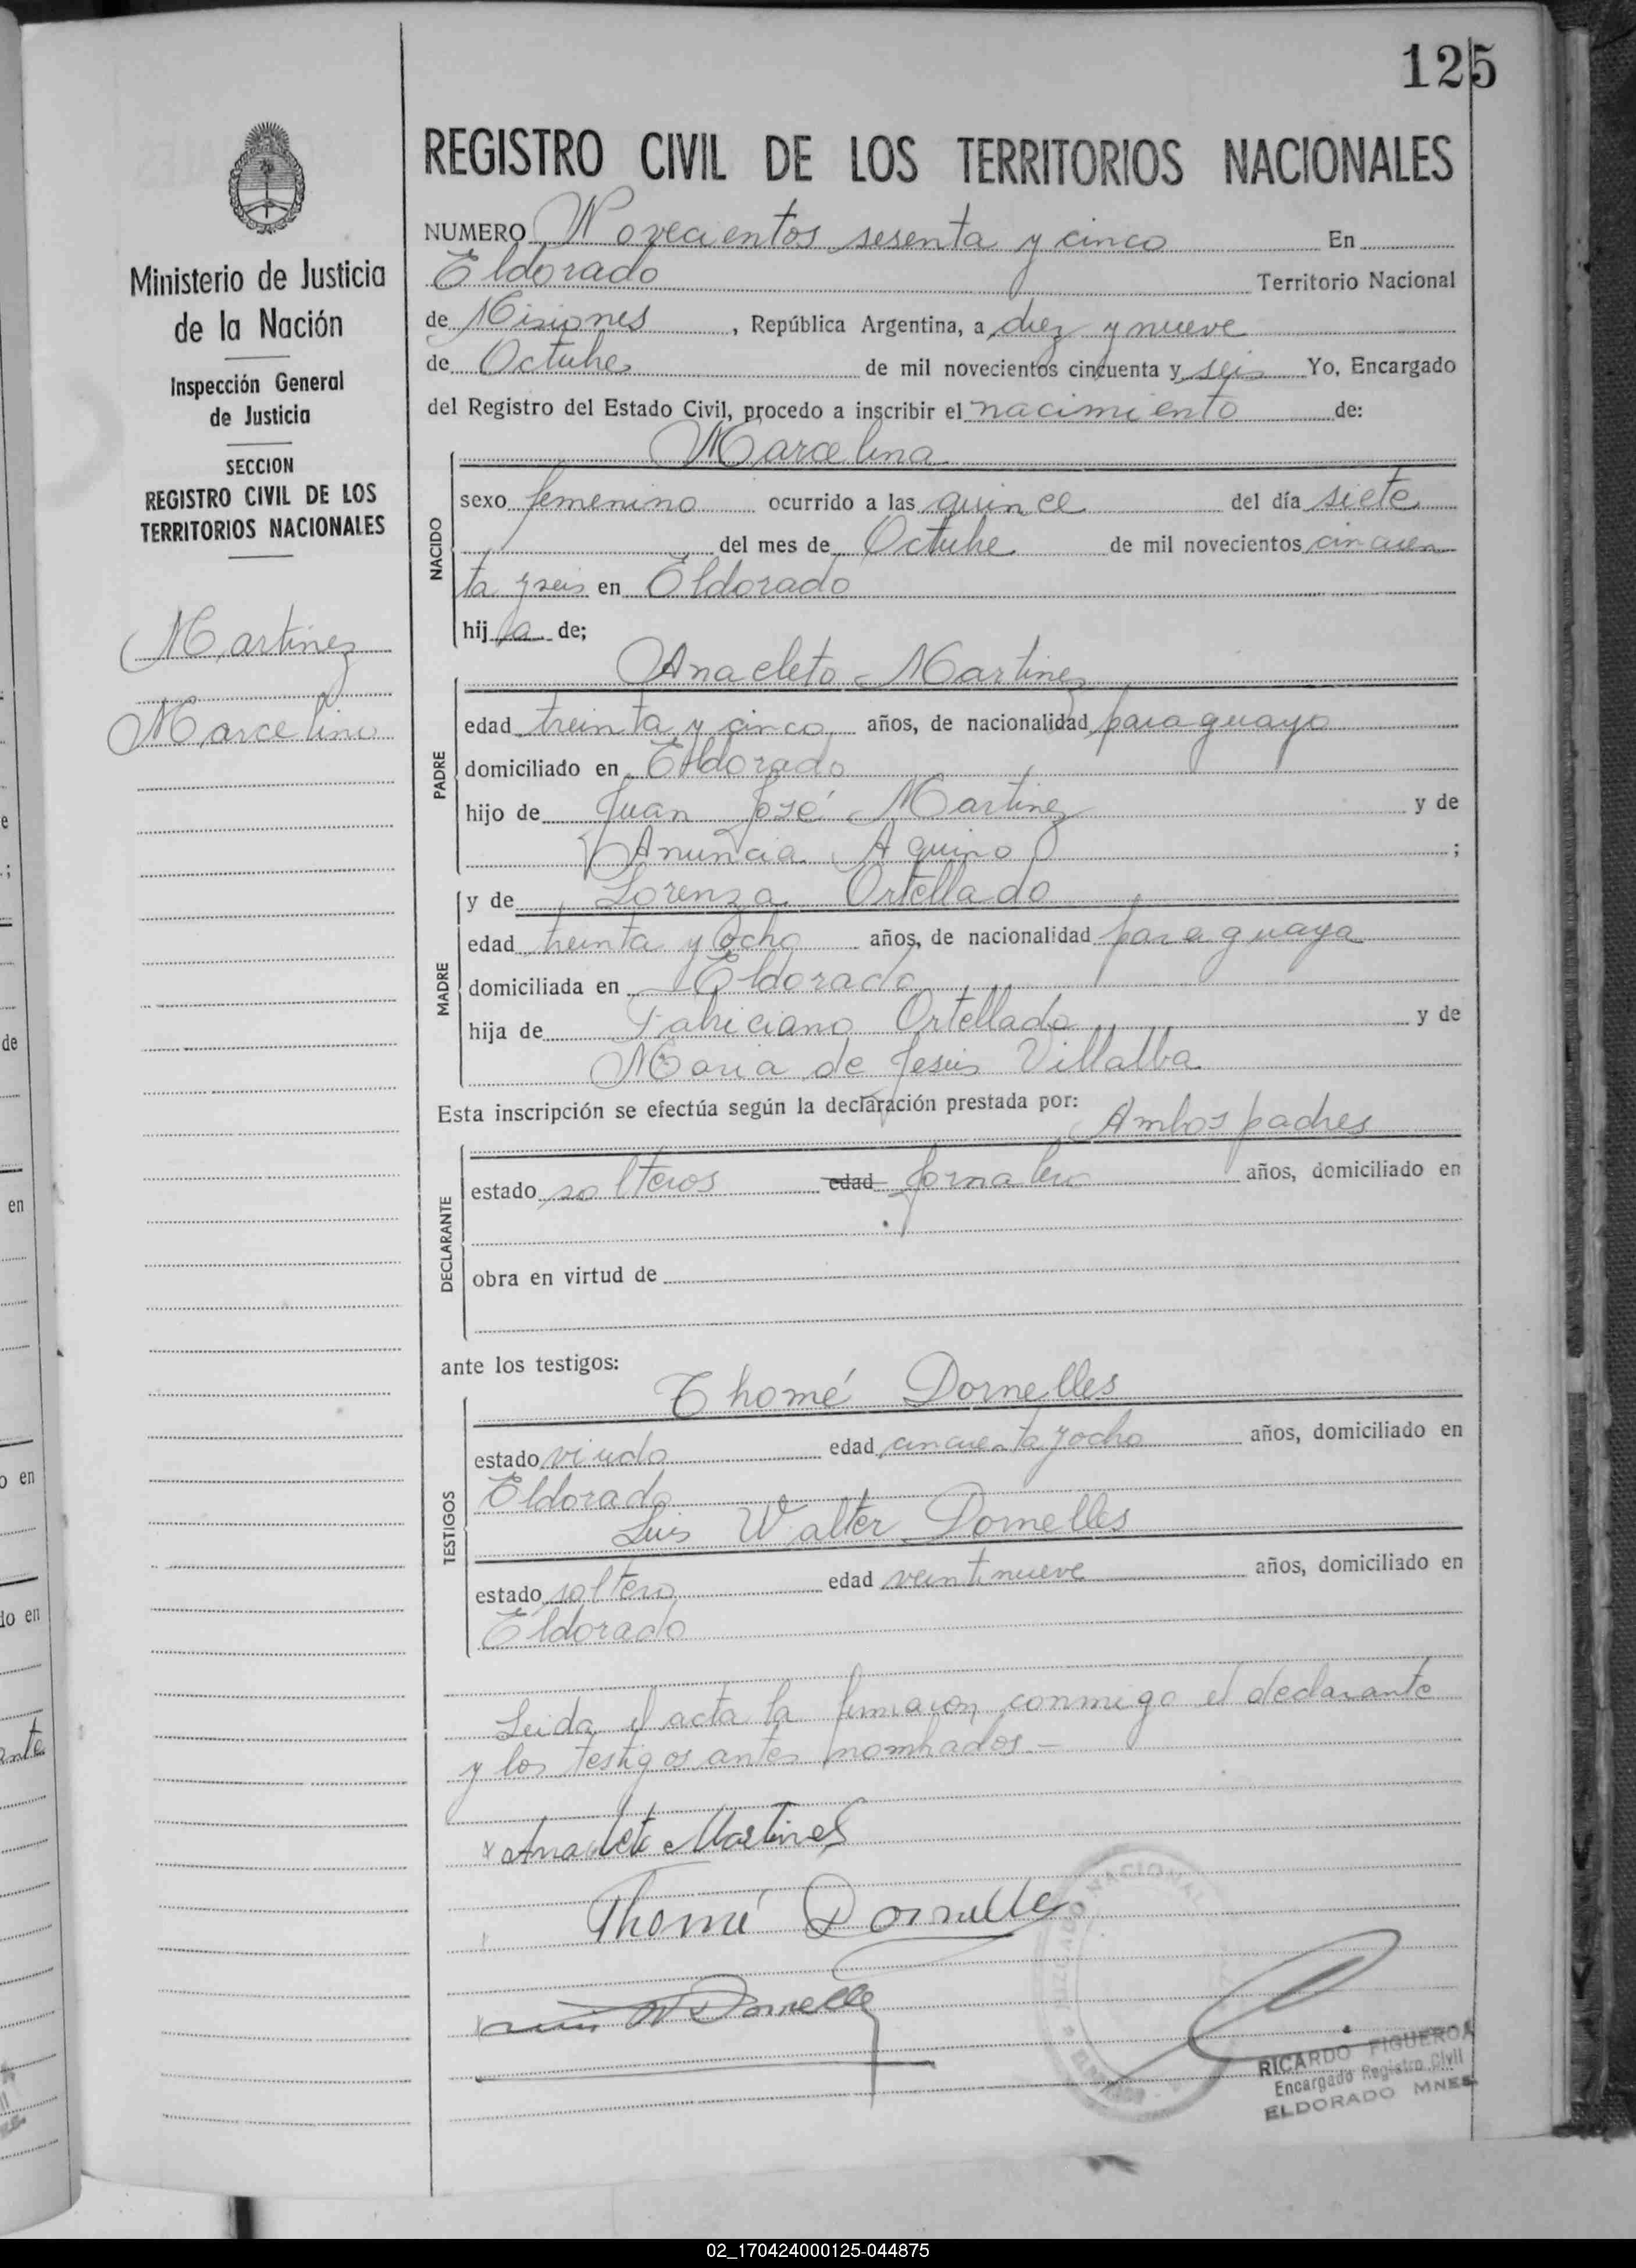 125
REGISTRO CIVIL DE LOS TERRITORIOS NACIONALES
Ministerio de Justicia
de la Nación
Inspección General
de Justicia
SECCION
REGISTRO CIVIL DE LOS
TERRITORIOS NACIONALES
Martinez
Marcelina
NUMERO Novecientos sesenta y cinco En
Eldorado Territorio Nacional
de Misiones, República Argentina, a diez y nueve
de Octubre de mil novecientos cincuenta y seis Yo, Encargado
del Registro del Estado Civil, procedo a inscribir el nacimiento de:
NACIDO
Marcelina
sexo femenino ocurrido a las quince del día siete
del mes de Octubre de mil novecientos cincuen
ta y seis en Eldorado
hija de;
PADRE
Anacleto Martinez
edad treinta y cinco años, de nacionalidad paraguayo
domiciliado en Eldorado
hijo de Juan José Martinez y de
Anuncia Aquino ;
MADRE
y de Lorenza Ortellado
edad treinta y ocho años, de nacionalidad paraguaya
domiciliada en Eldorado
hija de Fabriciano Ortellado y de
Maria de Jesús Villalba
Esta inscripción se efectúa según la declaración prestada por:
DECLARANTE
Ambos padres
estado solteros edad jornalero años, domiciliado en
obra en virtud de
ante los testigos:
TESTIGOS
Thomé Dornelles
estado viudo edad cincuenta y ocho años, domiciliado en
Eldorado
Luis Walter Dornelles
estado soltero edad veintinueve años, domiciliado en
Eldorado
Leida el acta la firmaron conmigo el declarante
y los testigos antes nombrados.-
x Anacleto Martines
Thomé Dornelles
Luis W Dornelles
RICARDO FIGUEROA
Encargado Registro Civil
ELDORADO MNES.
02_170424000125-044875